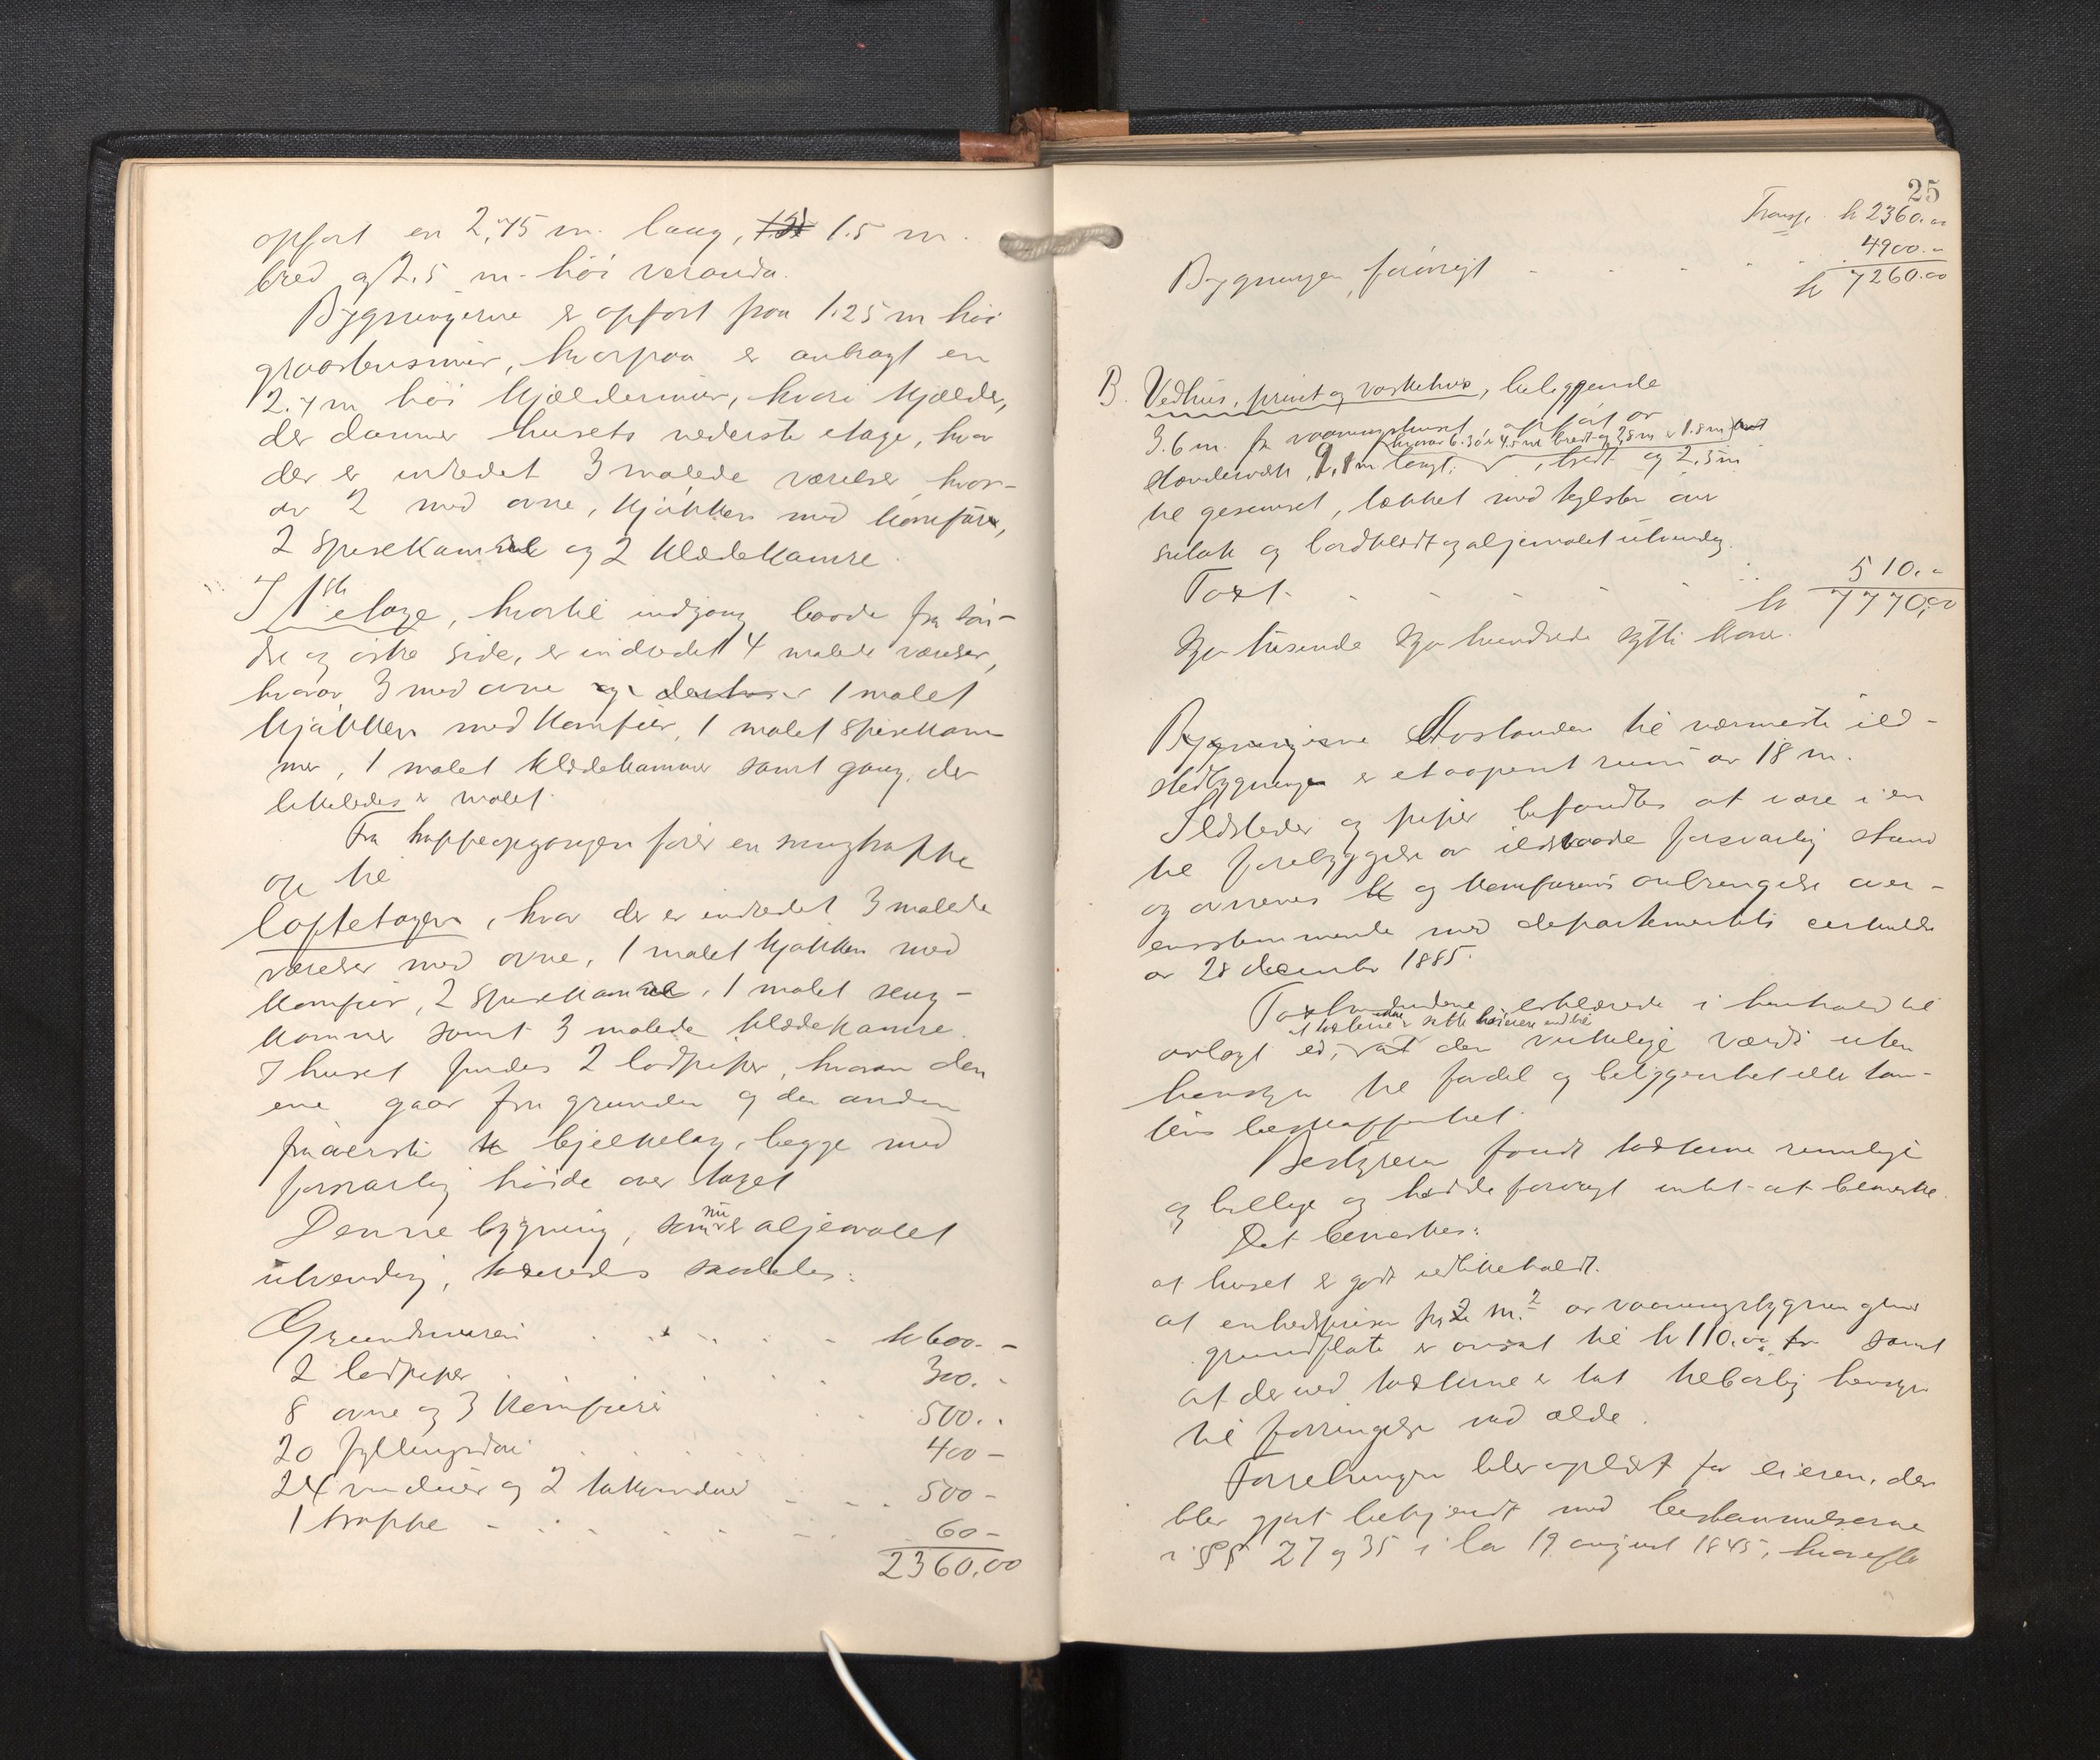 opført en 2,75 m. lang, 1.5 m.
bred og 2.5 m. höi veranda.
Bygningerne er opført paa 1.25 m höi
graastensmur, hvorpaa er anbragt en
2.4 m höi kjældermur, hvori kjælder,
der danner husets nederste etage, hvor
der er indredet 3 malede værelser, hvor-
av 2 med ovne, kjøkken med komfür,
2 spisekamre og 2 klædekamre.
I 1ste etage, hvortil indgang baade fra søn-
dre og østre side, er indredet 4 malede værelser,
hvorav 3 med ovne og desuden 1 malet
kjøkken med komfür, 1 malet spisekam-
mer, 1 malet klædekammer samt gang, der
likeledes er malet.
Fra trappeopgangen fører en svingtrappe
op til
loftetagen, hvor der er indredet 3 malede
værelser med ovne, 1 malet kjøkken med
komfür, 2 spisekamre, 1 malet seng-
kammer samt 3 malede klædekamre.
I huset findes 2 lodpiper, hvorav den
ene gaar fra grunden og den anden
fra øverste bjelkelag, begge med
forsvarlig høide over taget
Denne bygning, som nu er oljemalet
utvendig, taxeredes saaledes:
Grundmuren . . . . . kr 600.-
2 lodpiper . . . . . 300.-
8 ovne og 3 komfürer . . 500.-
20 fyllingsdøre . . . . 400-
24 vinduer og 2 takvinduer - - . 500-
1 trappe - . . . . - 60-
2360.00
25
Transp. kr 2360.00
Bygningen forøvrigt - . . . . 4900.-
kr 7260.00
B. Vedhus, privet og vaskehus, beliggende
3.6 m. fra vaaningshuset opført av
stenderverk, 9,1 m. langt, (hvorav 6.3 er 4.5 m bredt og 2,8 m er 1.8 m) bredt og 2,5 m
til gesimset, tækket med teglsten over
sutak og bordklædt og oljemalet utvendig.
Taxt. - - - - 510.-
kr 7770,00
Syv tusende syv hundrede sytti kroner.
Bygningerne Avstanden til nærmeste ild-
stedbygninger er et aapent rum av 18 m.
Ildsteder og piper befandtes at være i en
til forebyggelse av ildsvaade forsvarlig stand
og ovnenes og komfurenes anbringelse over-
ensstemmende med departementets cirkulære
av 28 december 1885.
Taxtmændene erklærede i henhold til
avlagt ed, at taxterne ikke er satt høiere end til den virkelige værdi uten
hensyn til fordel og beliggenhet eller tom-
tens beskaffenhet.
Bestyreren fandt taxterne rimelige
og billige og hadde forøvrigt intet at bemerke.
Det bemerkes:
at huset er godt vedlikeholdt.
at enhedsprisen pr. m.2 av vaaningsbygningens
grundflate er ansat til kr 110.00 samt
at der ved taxterne er tat tilbørlig hensyn
til forringelse ved ælde.
Forretningen blev oplæst for eieren, der
blev gjort bekjendt med bestemmelserne
i §§ 27 og 35 i lov 19 august 1845, hvorefter